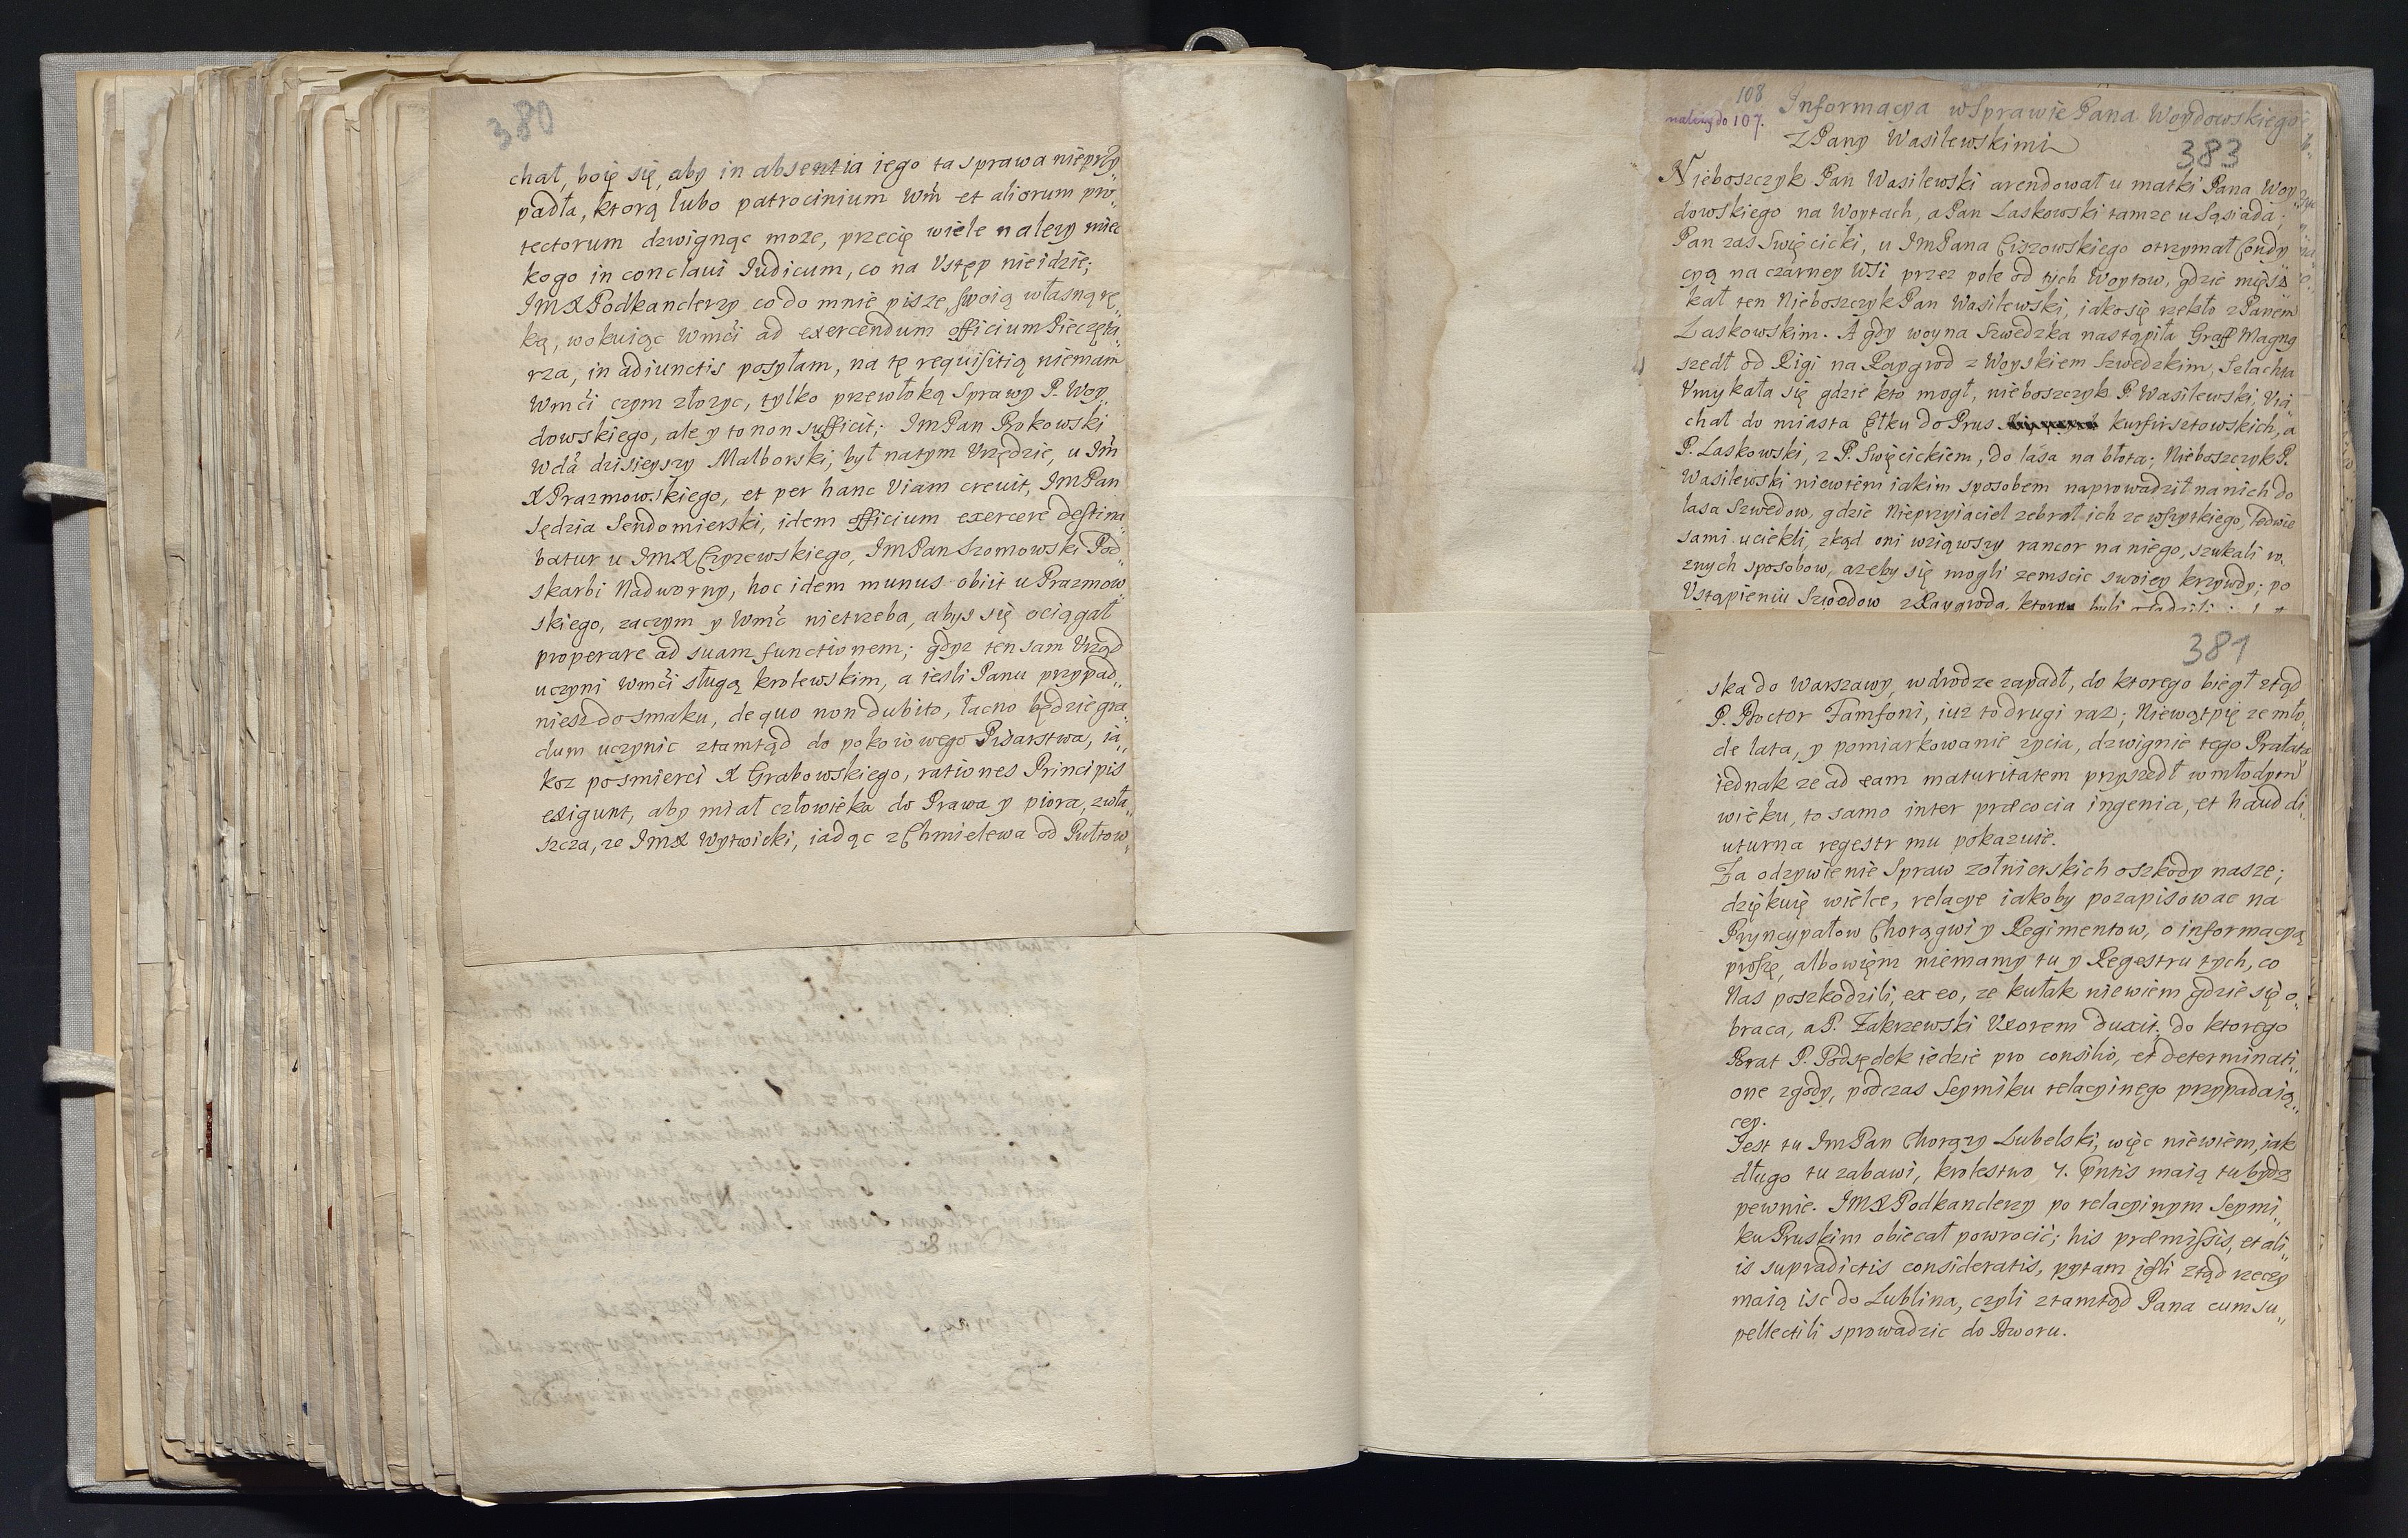 380
chał, boię się, aby in absentia iego ta sprawa nieprzy„
padła, ktorą lubo patrocinium Wm̃ et aliorum pro„
tectorum dzwignąc moze, przecię wiele nalezy miec
kogo in conclaui Iudicum, co na Vstęp nieidzie;
IMX Podkanclerzy co do mnie pisze, swoią własną rę„
ką, wokuiąc Wmći ad exercendum officium Pieczęta„
rza, in adiunctis posyłam, na tę requisitią niemam
Wmći czym złozyc, tylko przewłoką Sprawy P. Woy„
dowskiego, ale y to non sufficit; ImPan Bokowski
Wda dzisieyszy Malborski, był natym Vrzędzie, u Im
X Prazmowskiego, et per hanc Viam creuit, ImPan
Sędzia Sendomierski, idem officium exercere destina„
batur u ImX Czyzewskiego, ImPan Szomowski Pod„
skarbi Nadworny, hoc idem munus obiit u Prazmow„
skiego, zaczym y Wmć nietrzeba, abys się ociągał
properare ad suam functionem; gdyz ten sam Vrząd
uczyni Wmći sługą krolewskim, a iesli Panu przypad„
niesz do smaku, de quo non dubito, łacno będzie gra„
dum uczynic ztamtąd do pokoiowego Pisarstwa, ia„
koz posmierci X Grabowskiego, rationes Principis
exigunt, aby miał człowieka do Prawa y piora, zwła„
szcza, ze ImX Wytwicki, iadąc z Chmielewa od Pułtow„
108
nalezy do 107.
Informacya w Sprawie Pana Woydowskiego
Z Pany Wasilewskimi
383
Nieboszczyk Pan Wasilewski arendował u matki Pana Woy
dowskiego na Woytach, a Pan Laskowski tamze u Sąsiada;
Pan zas Swięcicki, u ImPana Ciszowskiego otrzymał Condy
cyą na czarney Wsi przez pole od tych Woytow, gdzie miesz
kał ten Nieboszczyk Pan Wasilewski, iako się rzekło z Panem
Laskowskim. A gdy woyna Szwedzka nastąpiła Graff Magny
szedł od Rigi na Raygrod z Woyskiem Szwedzkim, Szlachta
Vmykała się gdzie kto mogł, nieboszczyk P. Wasilewski, Via
chał do miasta Ełku do Prus kurfirsztowskich, a
P. Laskowski, z P. Swięcickiem, do lasa na błota; Nieboszczyk P.
Wasilewski niewiem iakim sposobem naprowadził na nich do
lasa Szwedow, gdzie Nieprzyiaciel zebrał ich ze wszytkiego, ledwie
sami uciekli, zkąd oni wziąwszy rancor na niego, szukali ro„
znych sposobow, azeby się mogli zemscic swoiey krzywdy; po
Vstąpieniu Szwedow z Raygroda, ktory byli
381
ska do Warszawy, w drodze zapadł, do ktorego biegł ztąd
P. Doctor Famfoni, iuz to drugi raz; Niewątpię ze mło„
de lata, y pomiarkowanie zycia, dzwignie tego Prałata
iednak ze ad eam maturitatem przyszedł w młodym
wieku, to samo inter præcocia ingenia, et haud di„
uturna regestr mu pokazuie.
Za odzywienie Spraw zołnierskich o szkody nasze;
dziękuię wielce, relacye iakoby pozapisowac na
Pryncypałow Chorągwi y Regimentow, o informacyą
proszę, albowiem niemamy tu y Regestru tych, co
Nas poszkodzili, ex eo, ze kułak niewiem gdzie się o„
braca, a P. Zakrzewski Vxorem duxit, do ktorego
Brat P. Podsędek iedzie pro consilio, et determinati„
one zgody, podczas Seymiku relacyinego przypadaią„
cey.
Jest tu ImPan Chorązy Lubelski, więc niewiem, iak
długo tu zabawi, krolestwo 7. P̃ntis maią tu bydz
pewnie. IMX Podkanclerzy po relacyinym Seymi„
ku Pruskim obiecał powrocic; his præmissis, et ali„
is supradictis consideratis, pytam iesli ztąd rzeczy
maią isc do Lublina, czyli ztamtąd Pana cum su„
pellectili sprowadzic do Dworu.